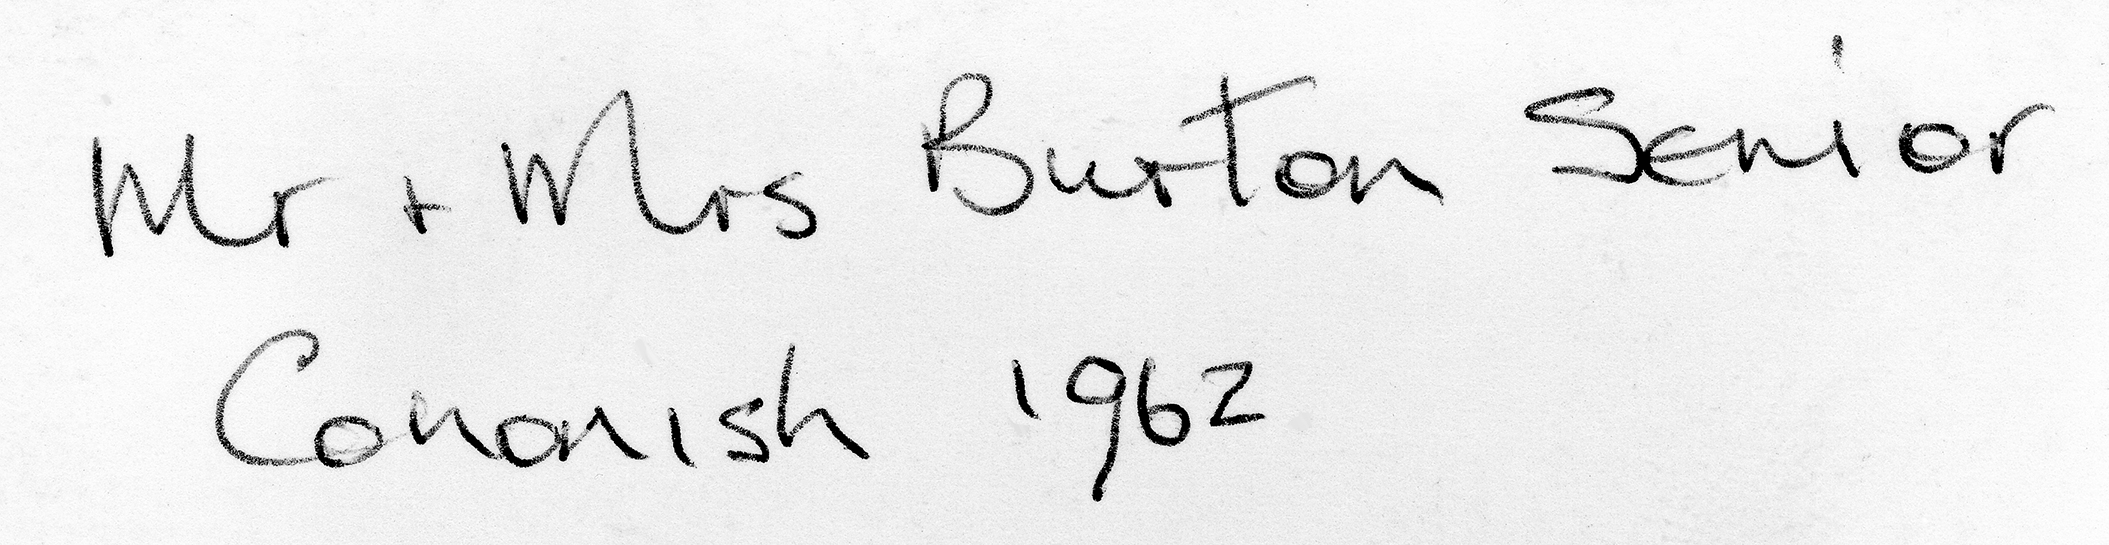 Mr + Mrs Burton Senior
Cononish 1962